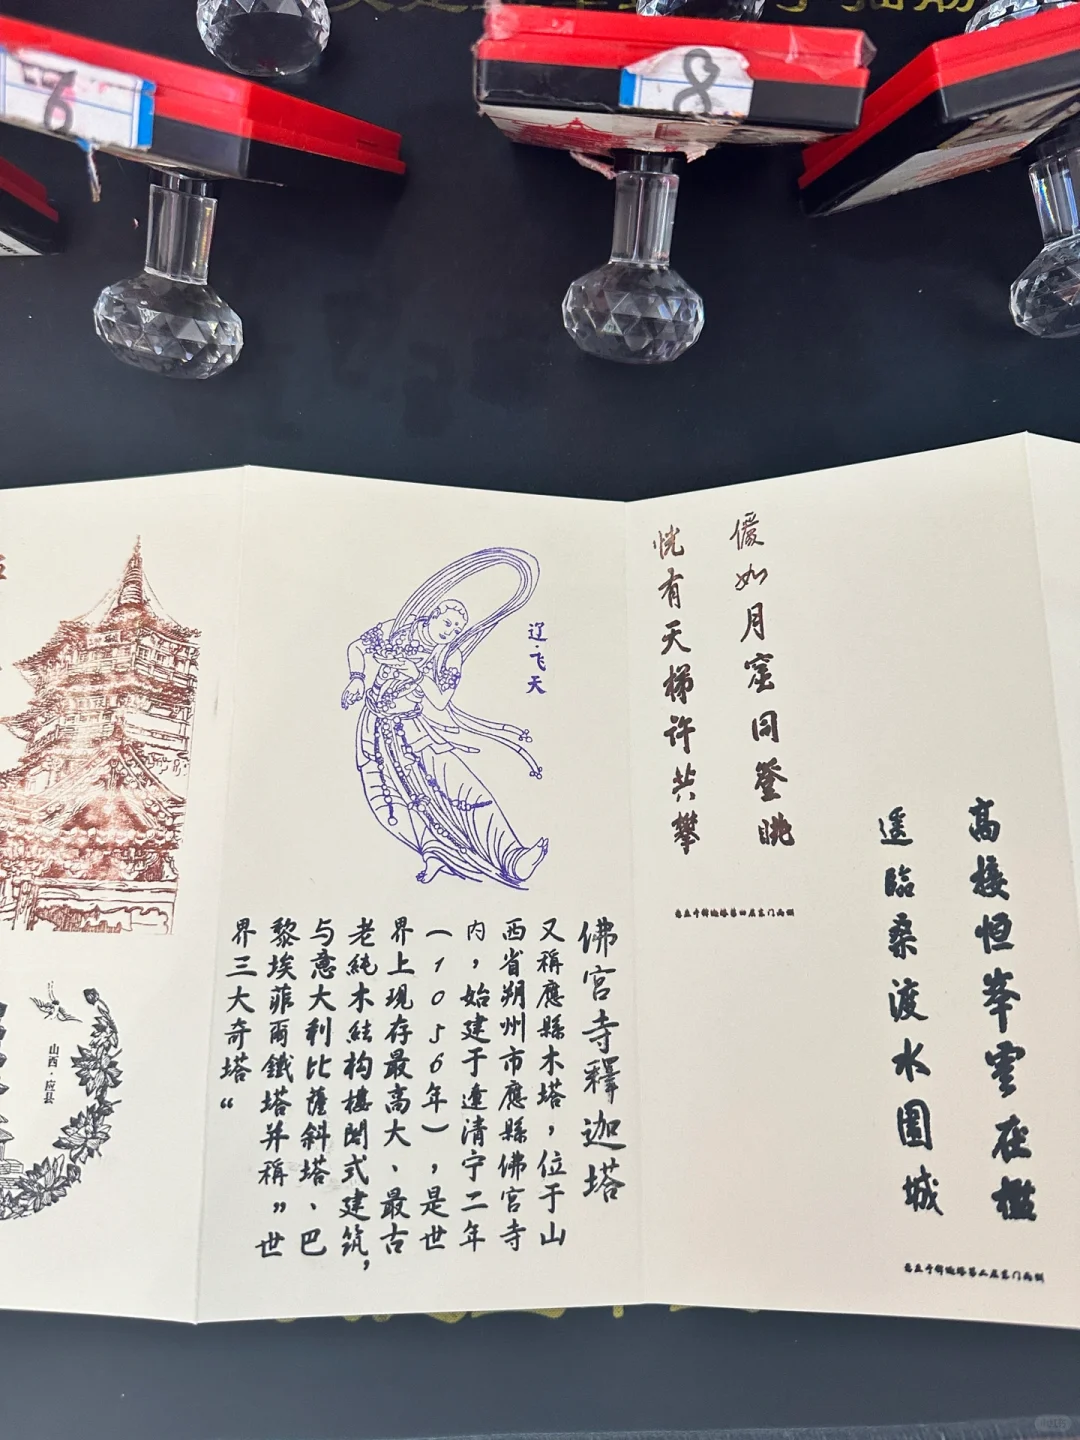 8
高接恒峯雲在檻
遥臨桑渡水圍城
儼如月窟同登眺
恍有天梯许共攀
辽·飞天
佛宫寺釋迦塔
又稱應縣木塔，位于山
西省朔州市應縣佛宫寺
内，始建于遼清宁二年
（1056年），是世
界上现存最高大、最古
老純木結构樓閣式建筑，
与意大利比薩斜塔、巴
黎埃菲爾鐵塔并稱”世
界三大奇塔“
山西·应县